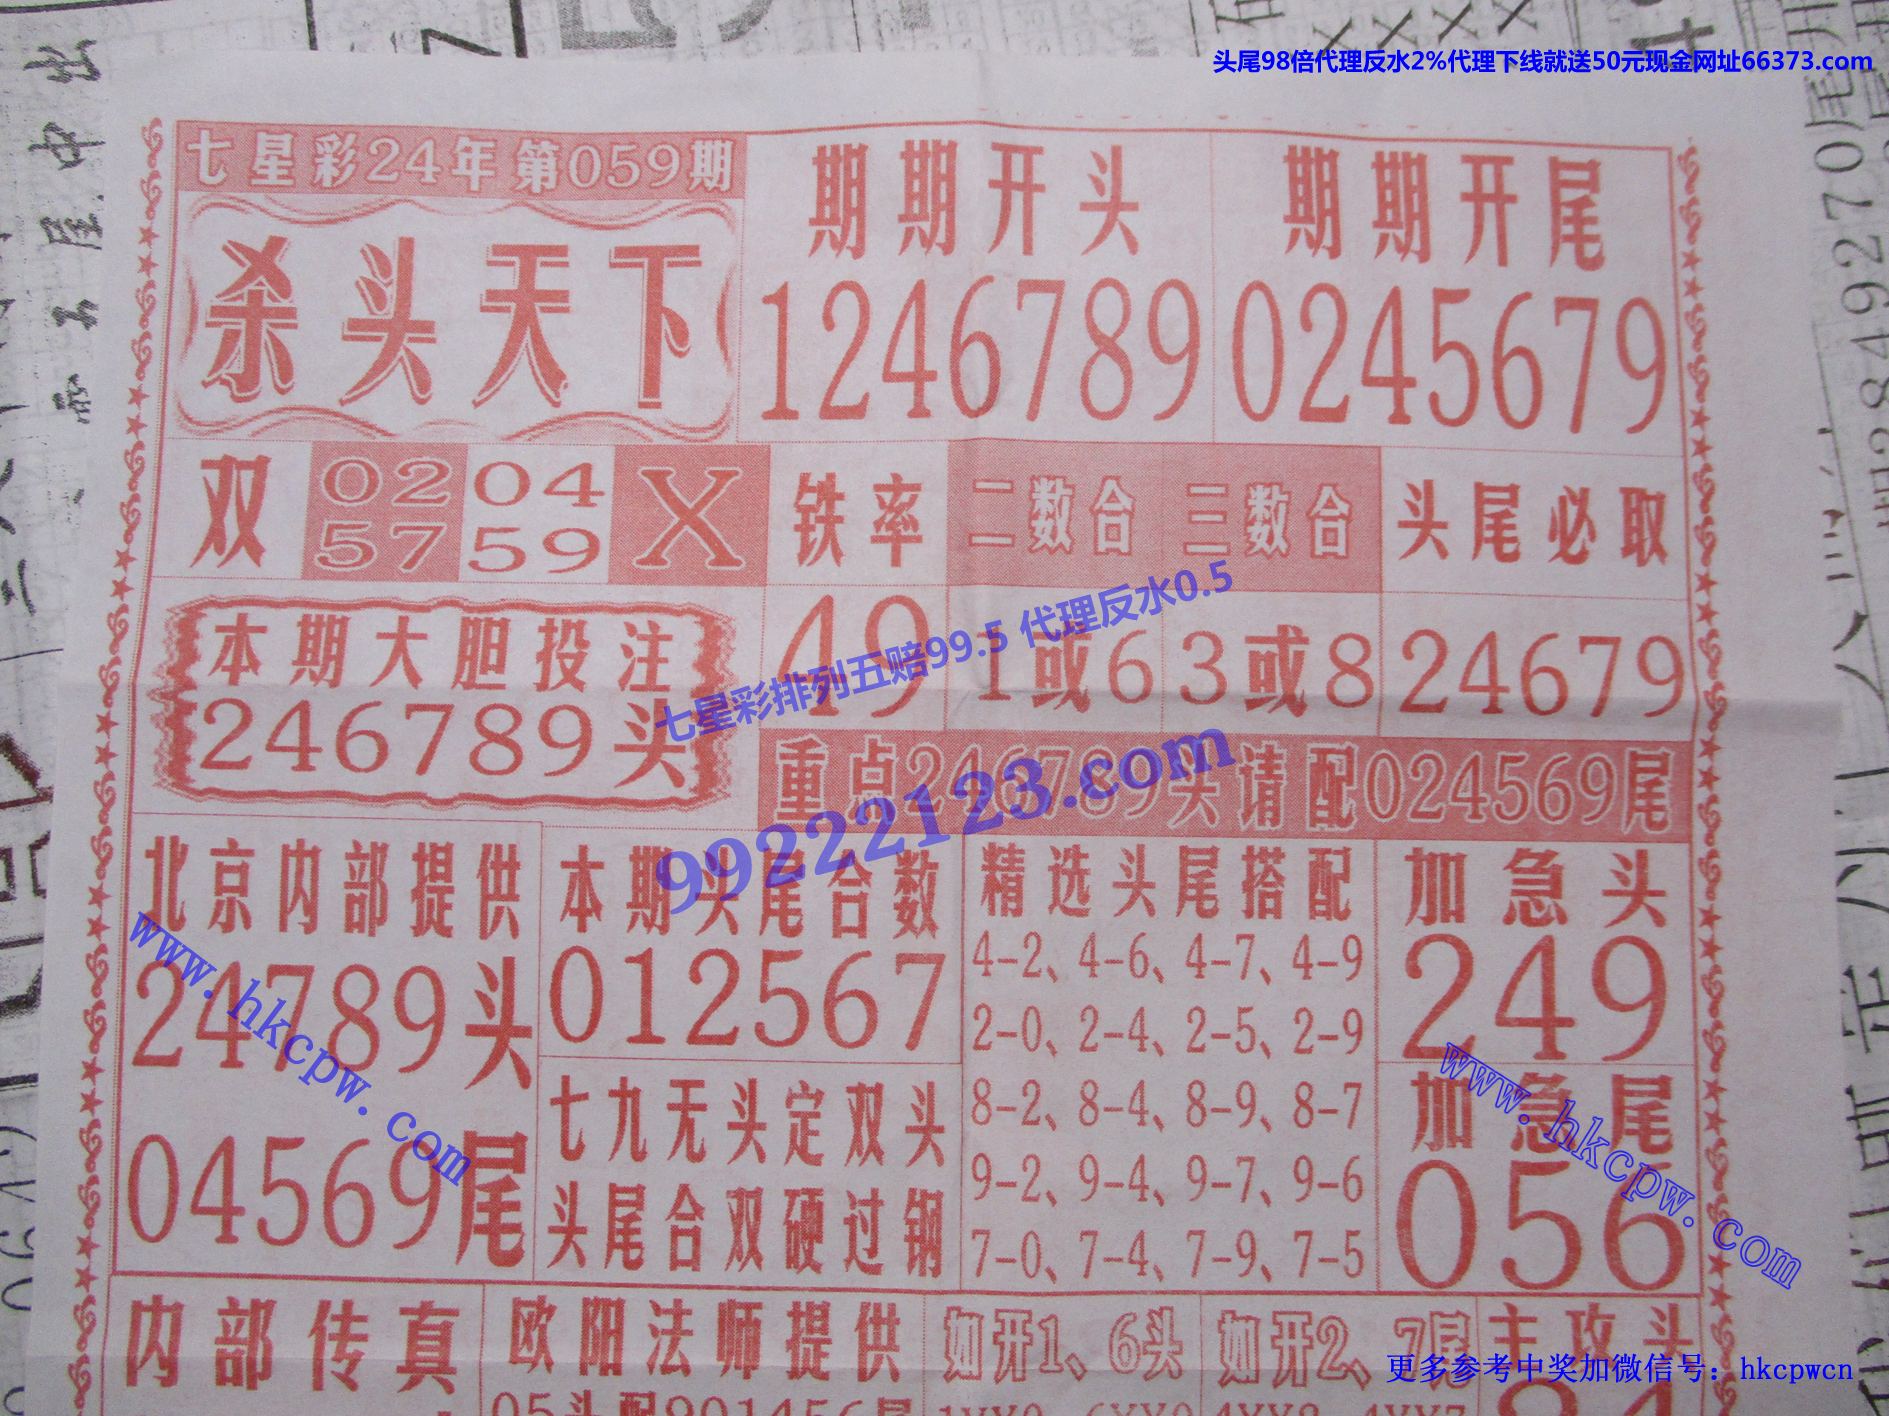 头尾98倍代理反水2%代理下线就送50元现金网址66373.com
七星彩24年第059期
杀头天下
期期开头
1246789
期期开尾
0245679
双
02 04
57 59
X
铁率
49
二数合
1或6
三数合
3或8
头尾必取
24679
本期大胆投注
246789头
重点246789头请配024569尾
七星彩排列五赔99.5 代理反水0.5
99222123.com
北京内部提供
24789头
04569尾
本期头尾合数
012567
七九无头定双头
头尾合双硬过钢
精选头尾搭配
4-2、4-6、4-7、4-9
2-0、2-4、2-5、2-9
8-2、8-4、8-9、8-7
9-2、9-4、9-7、9-6
7-0、7-4、7-9、7-5
加急头
249
加急尾
056
www.hkcpw.com
www.hkcpw.com
内部传真
欧阳法师提供
05头配901456尾
如开1、6头
如开2、7尾
主攻头
更多参考中奖加微信号：hkcpwcn